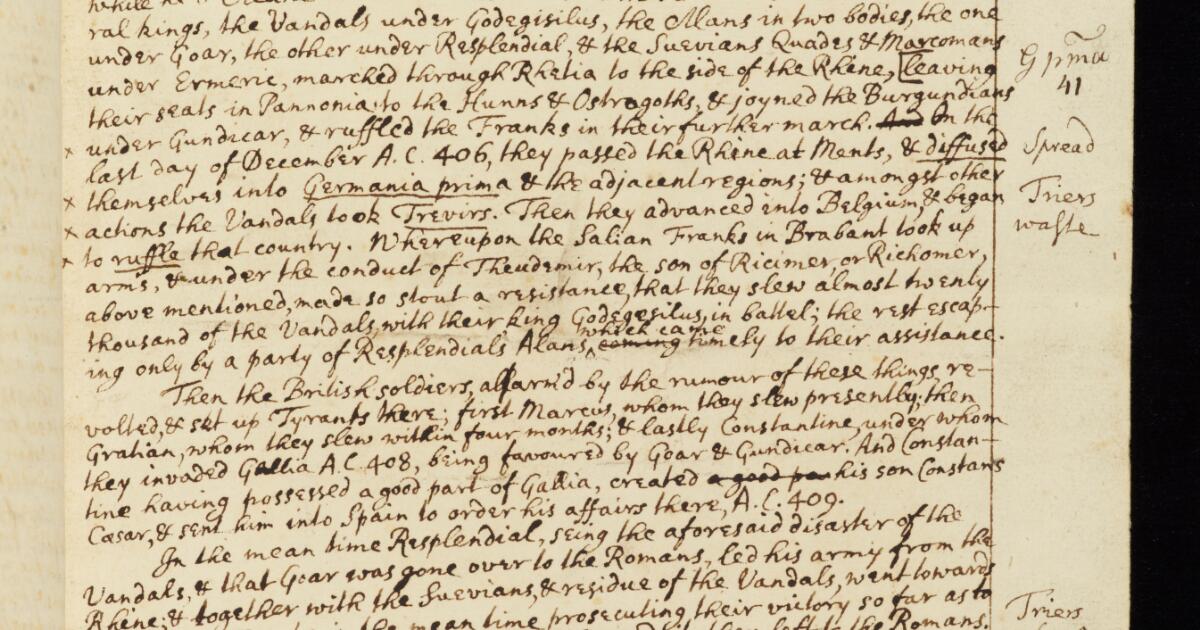 ral kings, the Vandals under Godegisilus, the Alans in two bodies, the one
under Goar, the other under Resplendial, & the Suevians Quades & Marcomans
under Ermeric, marched through Rhetia to the side of the Rhine, [leaving
their seats in Pannonia to the Hunns & Ostrogoths, & joyned the Burgundians
under Gundicar, & ruffled the Franks in their further march. And On the
last day of December A.C. 406, they passed the Rhine at Ments, & diffused
themselves into Germania prima & the adjacent regions; & amongst other
actions the Vandals took Trevirs. Then they advanced into Belgium, & began
to ruffle that country. Whereupon the Salian Franks in Brabant took up
arms, & under the conduct of Theudemir, the son of Ricimer, or Richomer,
above mentioned, made so stout a resistance, that they slew almost twenty
thousand of the Vandals, with their king Godegesilus, in battel; the rest escap-
ing only by a party of Resplendials Alans, coming which came timely to their assistance.
Then the British soldiers, alarm'd by the rumour of these things, re-
volted, & set up Tyrants there; first Marcus, whom they slew presently; then
Gratian, whom they slew within four months; & lastly Constantine, under whom
they invaded Gallia A.C. 408, being favoured by Goar & Gundicar. And Constan-
tine having possessed a good part of Gallia, created a good pa his son Constans
Cæsar, & sent him into Spain to order his affairs there, A.C. 409.
In the mean time Resplendial, seing the aforesaid disaster of the
Vandals, & that Goar was gone over to the Romans, led his army from the
Rhine; & together with the Suevians, & residue of the Vandals, went towards
the mean time prosecuting their victory so far as to
the Romans.
G pma
41
Spread
Triers
waste
Triers